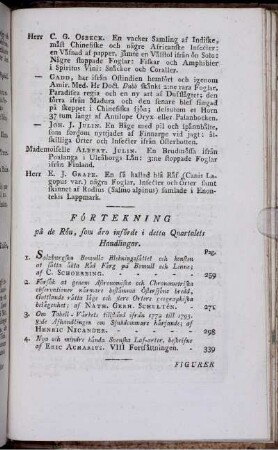 Herr C. G. OSBECK. En vacker Samling af Indiske,
mäst Chinesiske och någre Africanske Insecter:
en Väfnad af papper, jämte en Väfstol ifrån ön
Några stoppade Foglar: Fiskar och Amphibier
i Spiritus Vini: Snäckor och Coraller.
— GADD, har ifrån Ostindien hemfört och igenom
Amir. Med. Hr Doct. Dubb skänkt 2:ne rara Foglar.
Paradisea regia och en ny art af Dufslägtet: den
förra ifrån Madura och den senare blef fångad
på skeppet i Chinesiska sjön; dessutom et Horn
37 tum långt af Antilope Oryx eller Pasanbocken.
— JOH. J. JULIN. En Båge med pil och
som fordom nyttjades af Finnarne vid jagt:
skillige Örter och Insecter ifrån Österbotten.
Mademoiselle ALBERT. JULIN. En Brudmössa ifrån
Pualanga i Uleåborgs Län: 3:ne stoppade Foglar
ifrån Finland.
Herr E. J. GRAPE. En få kallad blå Räf (Canis Lagopus
var.) några Foglar, Insecter och Örter samt
skinnet af Rödlus (Salmo alpinus) samlade i Enontekis
Lappmark.
FÖRTEKNING
på de Rön, som äro införde i detta Quartalets
Handlingar.
Pag.
1. Salzburgska Bomulls Blekningssättet och konsten
at sätta äkta Röd Färg på Bomull och Linne;
af C. SCHOERBING. 259
2. Försök at genom Astronomiska och Chronometriska
observationer närmare bestämma Östersjöns bredd,
Gottlands rätta läge och flere Orters geographiska
belägenhet; af NATH. GERH. SCHULTÉN. 271
3. Om Tabell-Värkets tilstånd ifrån 1772 til 1795.
8:de Afhandlingen om Sjukdomars härjande; af
HENRIC NICANDER. 298
4. Nya och mindre kända Svenska Laf-arter, beskrifne
af ERIC ACHARIUS. VIII Fortsättningen. 339
FIGURER